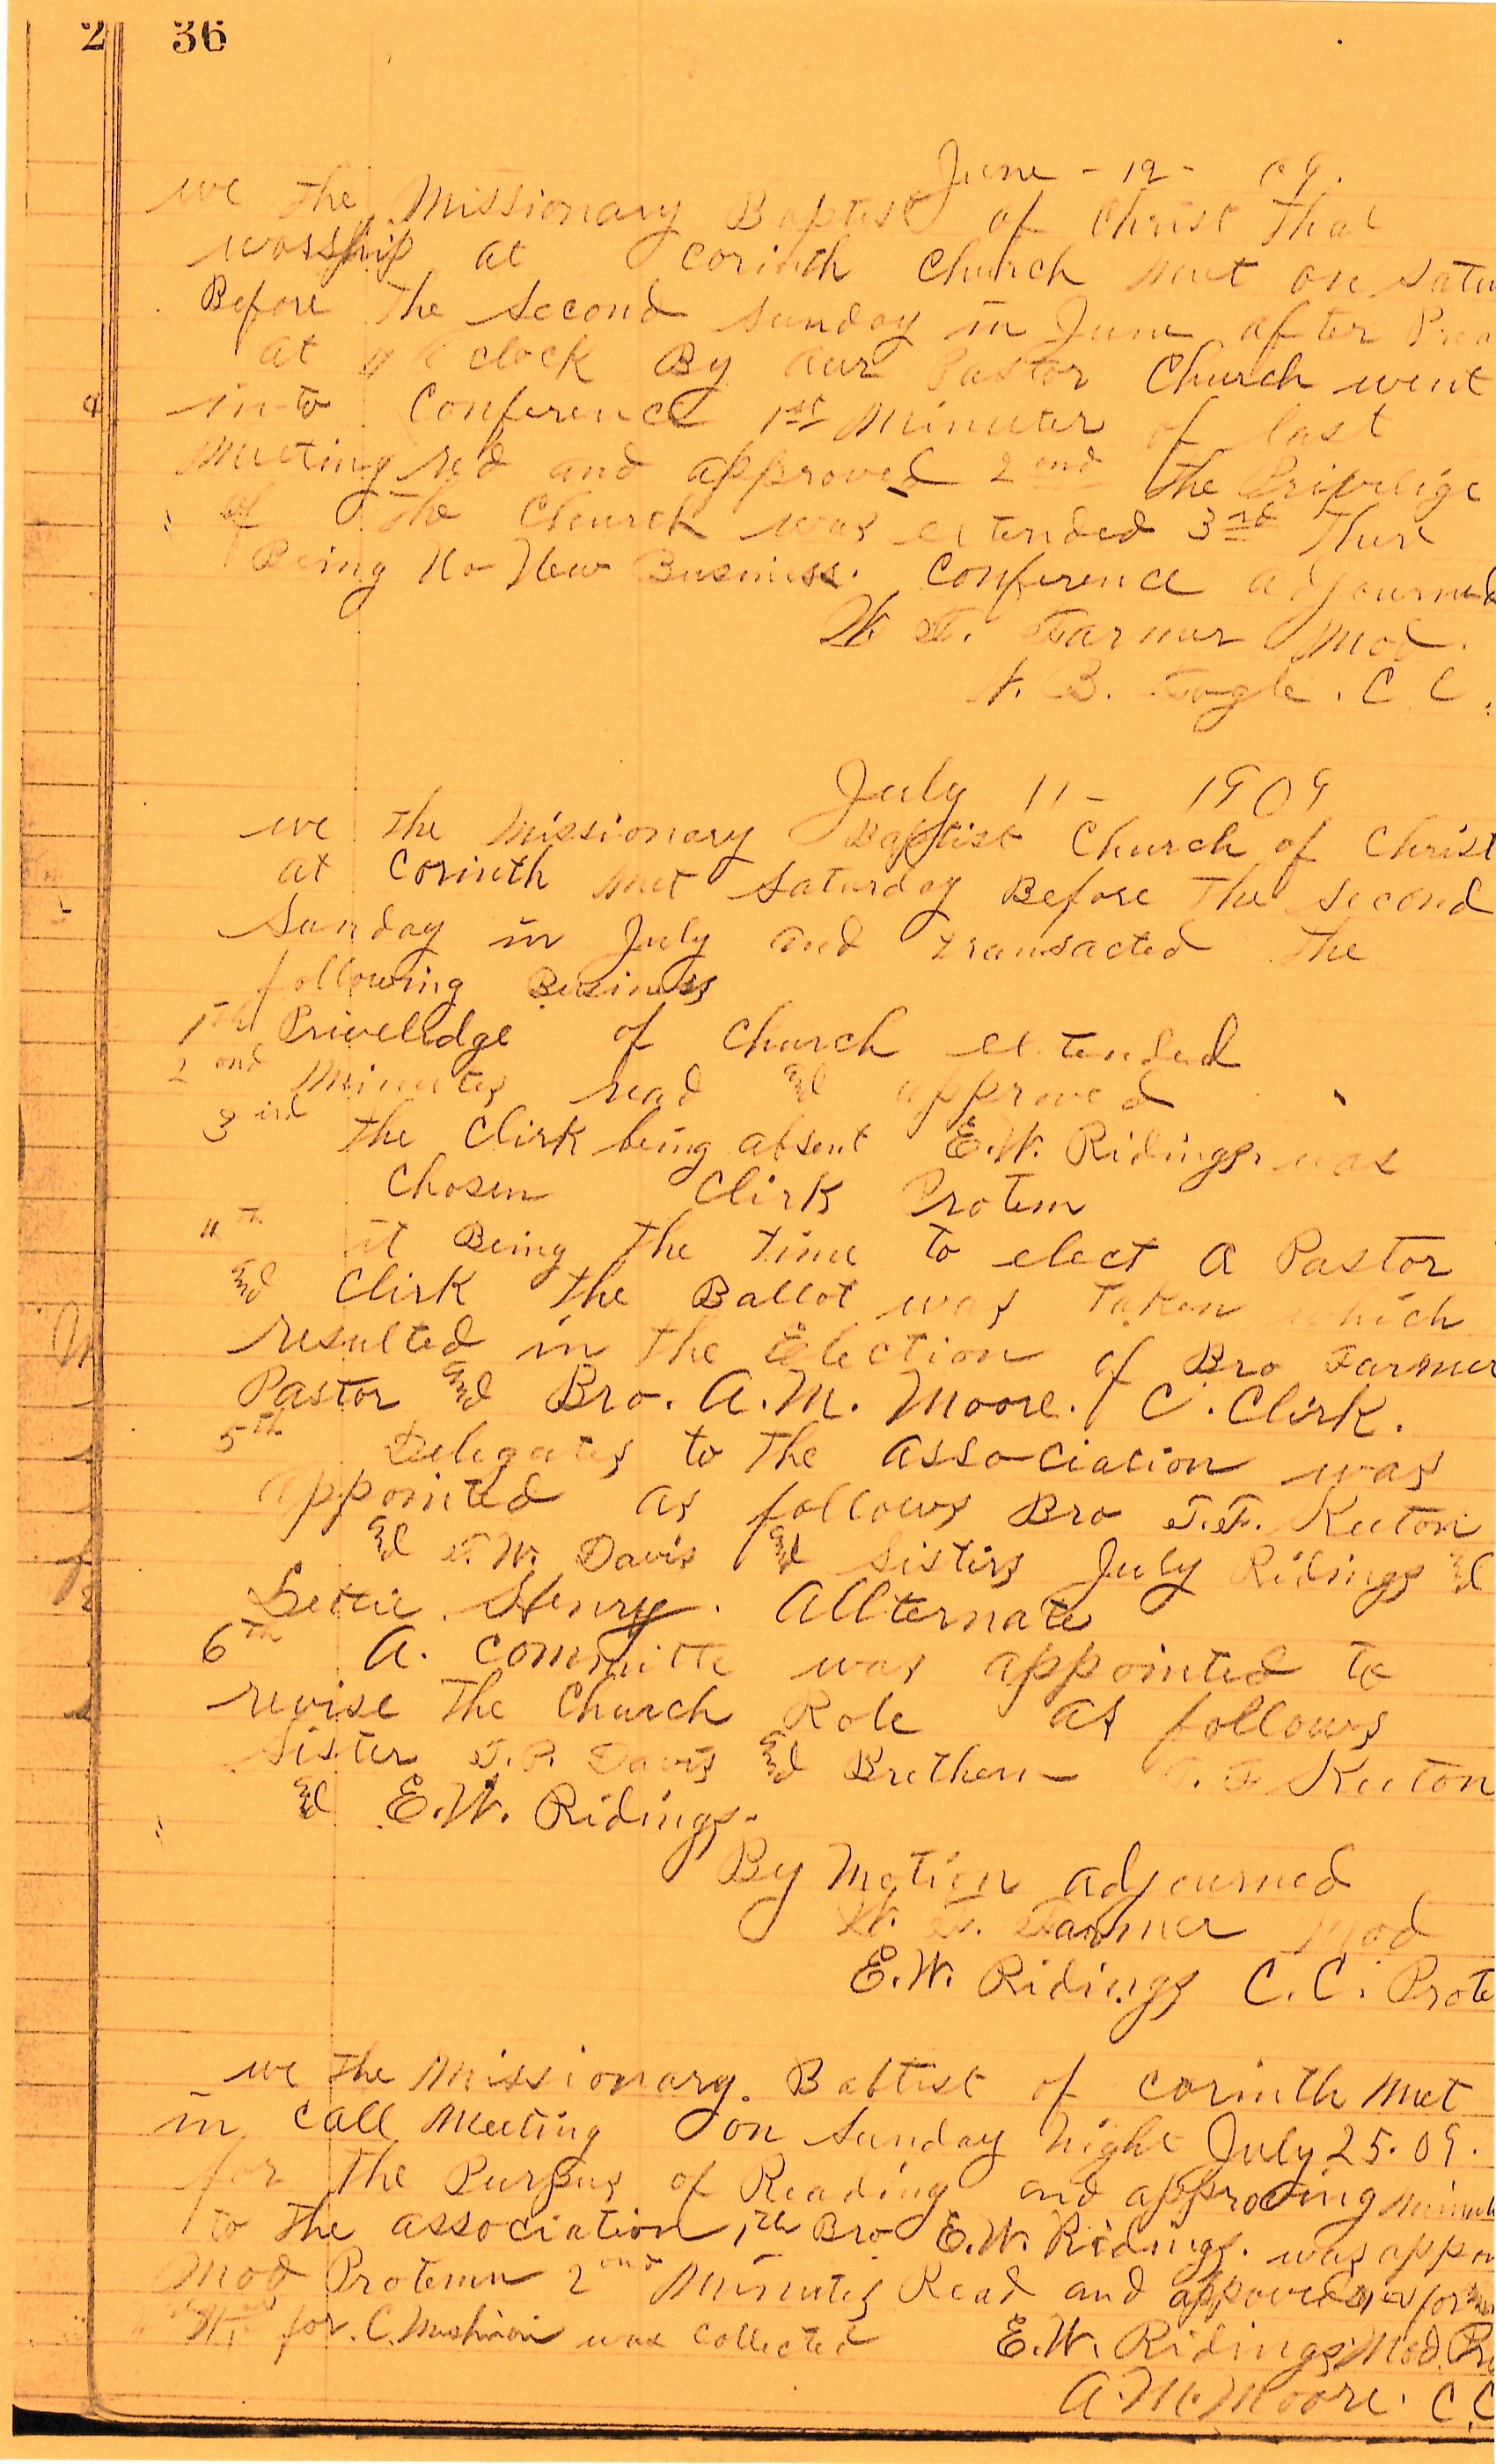 2 36
June - 12 - 09.
we the Missionary Baptist of Christ that
worship at Corinth Church met on Satu
Before the Second Sunday in June after Prea
at 11 o clock By our Pastor Church went
into Conference 1st Minutes of last
meeting red and approved 2ond the Privilige
of the Church was extended 3rd Thur
Being No New Business. Conference adjourned
W. T. Farmer Mod.
B. Fogle. C C.
July 11 - 1909
we the Missionary Baptist Church of Christ
at Corinth met Saturday Before the second
Sunday in July and transacted the
following Business
1th Priveledge of Church extended
2ond Minutes read and approved
3ird the Clirk being absent E.W. Ridings was
Chosen Clirk Protem
4th it Being the time to elect a Pastor
and Clirk the Ballot was taken which
resulted in the Election of Bro Farmer
Pastor and Bro. A.M. Moore. C. Clirk.
5th Delegates to the association was
appointed as follows Bro T.F. Keeton
and T.W. Davis and Sisters July Ridings and
Bettie Henry. Allternate
6th A. committe was appointed to
revise the Church Role as follows
Sister T.P. Davis and Brethern T. F Keeton
and E.W. Ridings.
By Motion adjourned
W. T. Farmer Mod
E.W. Ridings C.C. Prote
we the Missionary Babtist of Corinth met
in call meeting on Sunday night July 25. 09.
for the Purpus of Reading and approving
to the association 1th Bro E.W. Ridings. was appo
Mod Protemn 2ond Minutes Read and appoved
for C. was collected E.W. Ridings Mod. Pro
A.M. Moore. C.C